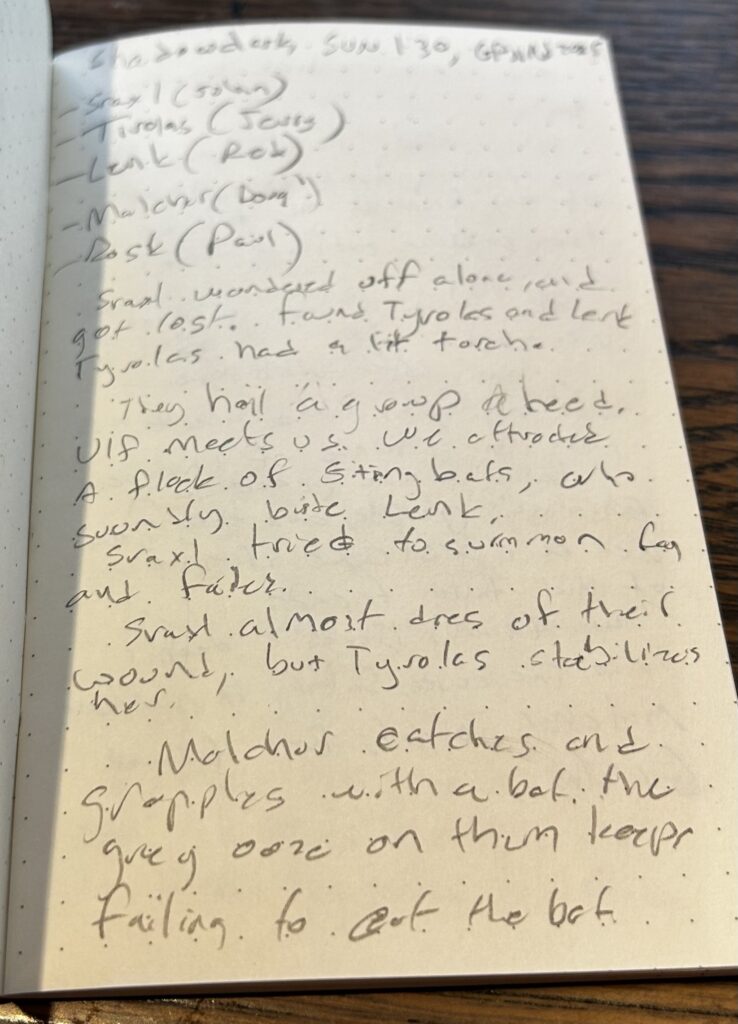 Shadowdark Sun 130,
- Sraxl (
- Tirolas (Jerry)
- Lenk (Rob)
- Malchur (Doug)
- Rosk (Paul)
Sraxl wondered off alone, and
got lost. Found Tyrolas and Lenk
Tyrolas had a lit torch.
They hail a group aheed.
Ulf meets us. We
A flock of Stingbats, who
soundly bite Lenk.
Sraxl tried to summon fog
and failed.
Sraxl almost dies of their
wound, but Tyrolas stabilizes
her.
Malchur catches and
grapples with a bat. The
grey ooze on them keeps
failing to eat the bat